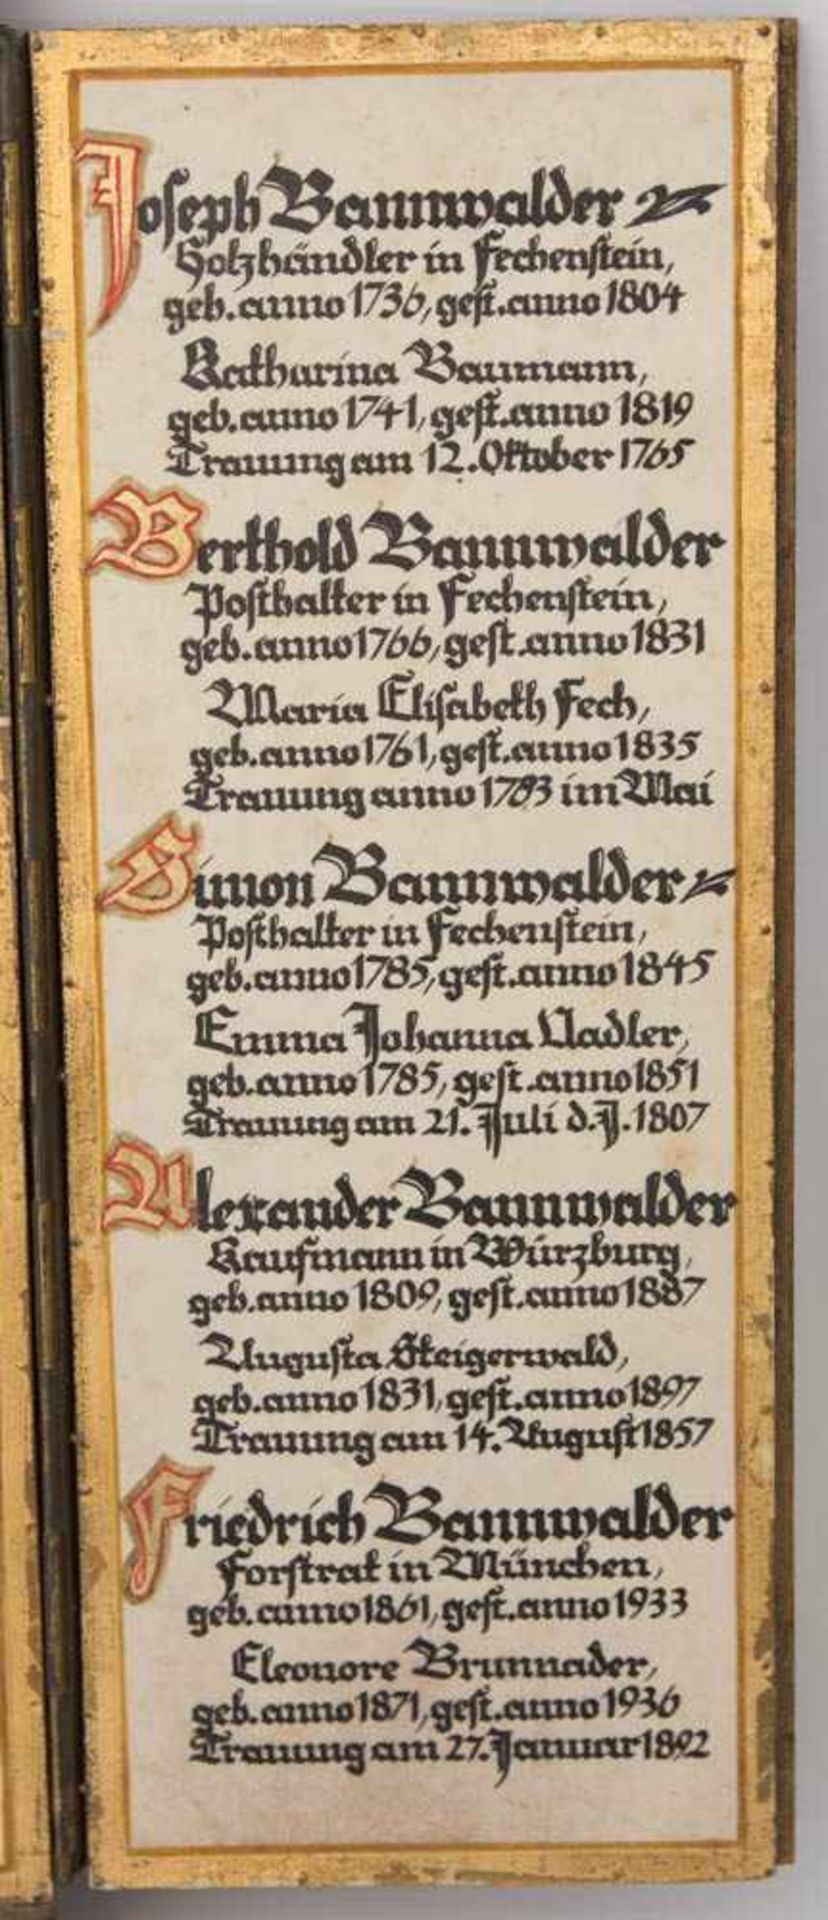 Joseph Bannwalder
Holzhändler in Fechenstein,
geb. anno 1736, gest. anno 1804
Katharina Baumann,
geb. anno 1741, gest. anno 1819
Trauung am 12. Oktober 1765
Berthold Bannwalder
Posthalter in Fechenstein,
geb. anno 1766, gest. anno 1831
Maria Elisabeth Fech,
geb. anno 1761, gest. anno 1835
Trauung anno 1783 im Mai
Simon Bannwalder
Posthalter in Fechenstein,
geb. anno 1785, gest. anno 1845
Emma Johanna Nadler,
geb. anno 1785, gest. anno 1851
Trauung am 21. Juli d. J. 1807
Alexander Bannwalder
Kaufmann in Würzburg,
geb. anno 1809, gest. anno 1887
Augusta Steigerwald,
geb. anno 1831, gest. anno 1897
Trauung am 14. August 1857
Friedrich Bannwalder
Forstrat in München,
geb. anno 1861, gest. anno 1933
Eleonore Brunnader,
geb. anno 1871, gest. anno 1936
Trauung am 27. Januar 1892